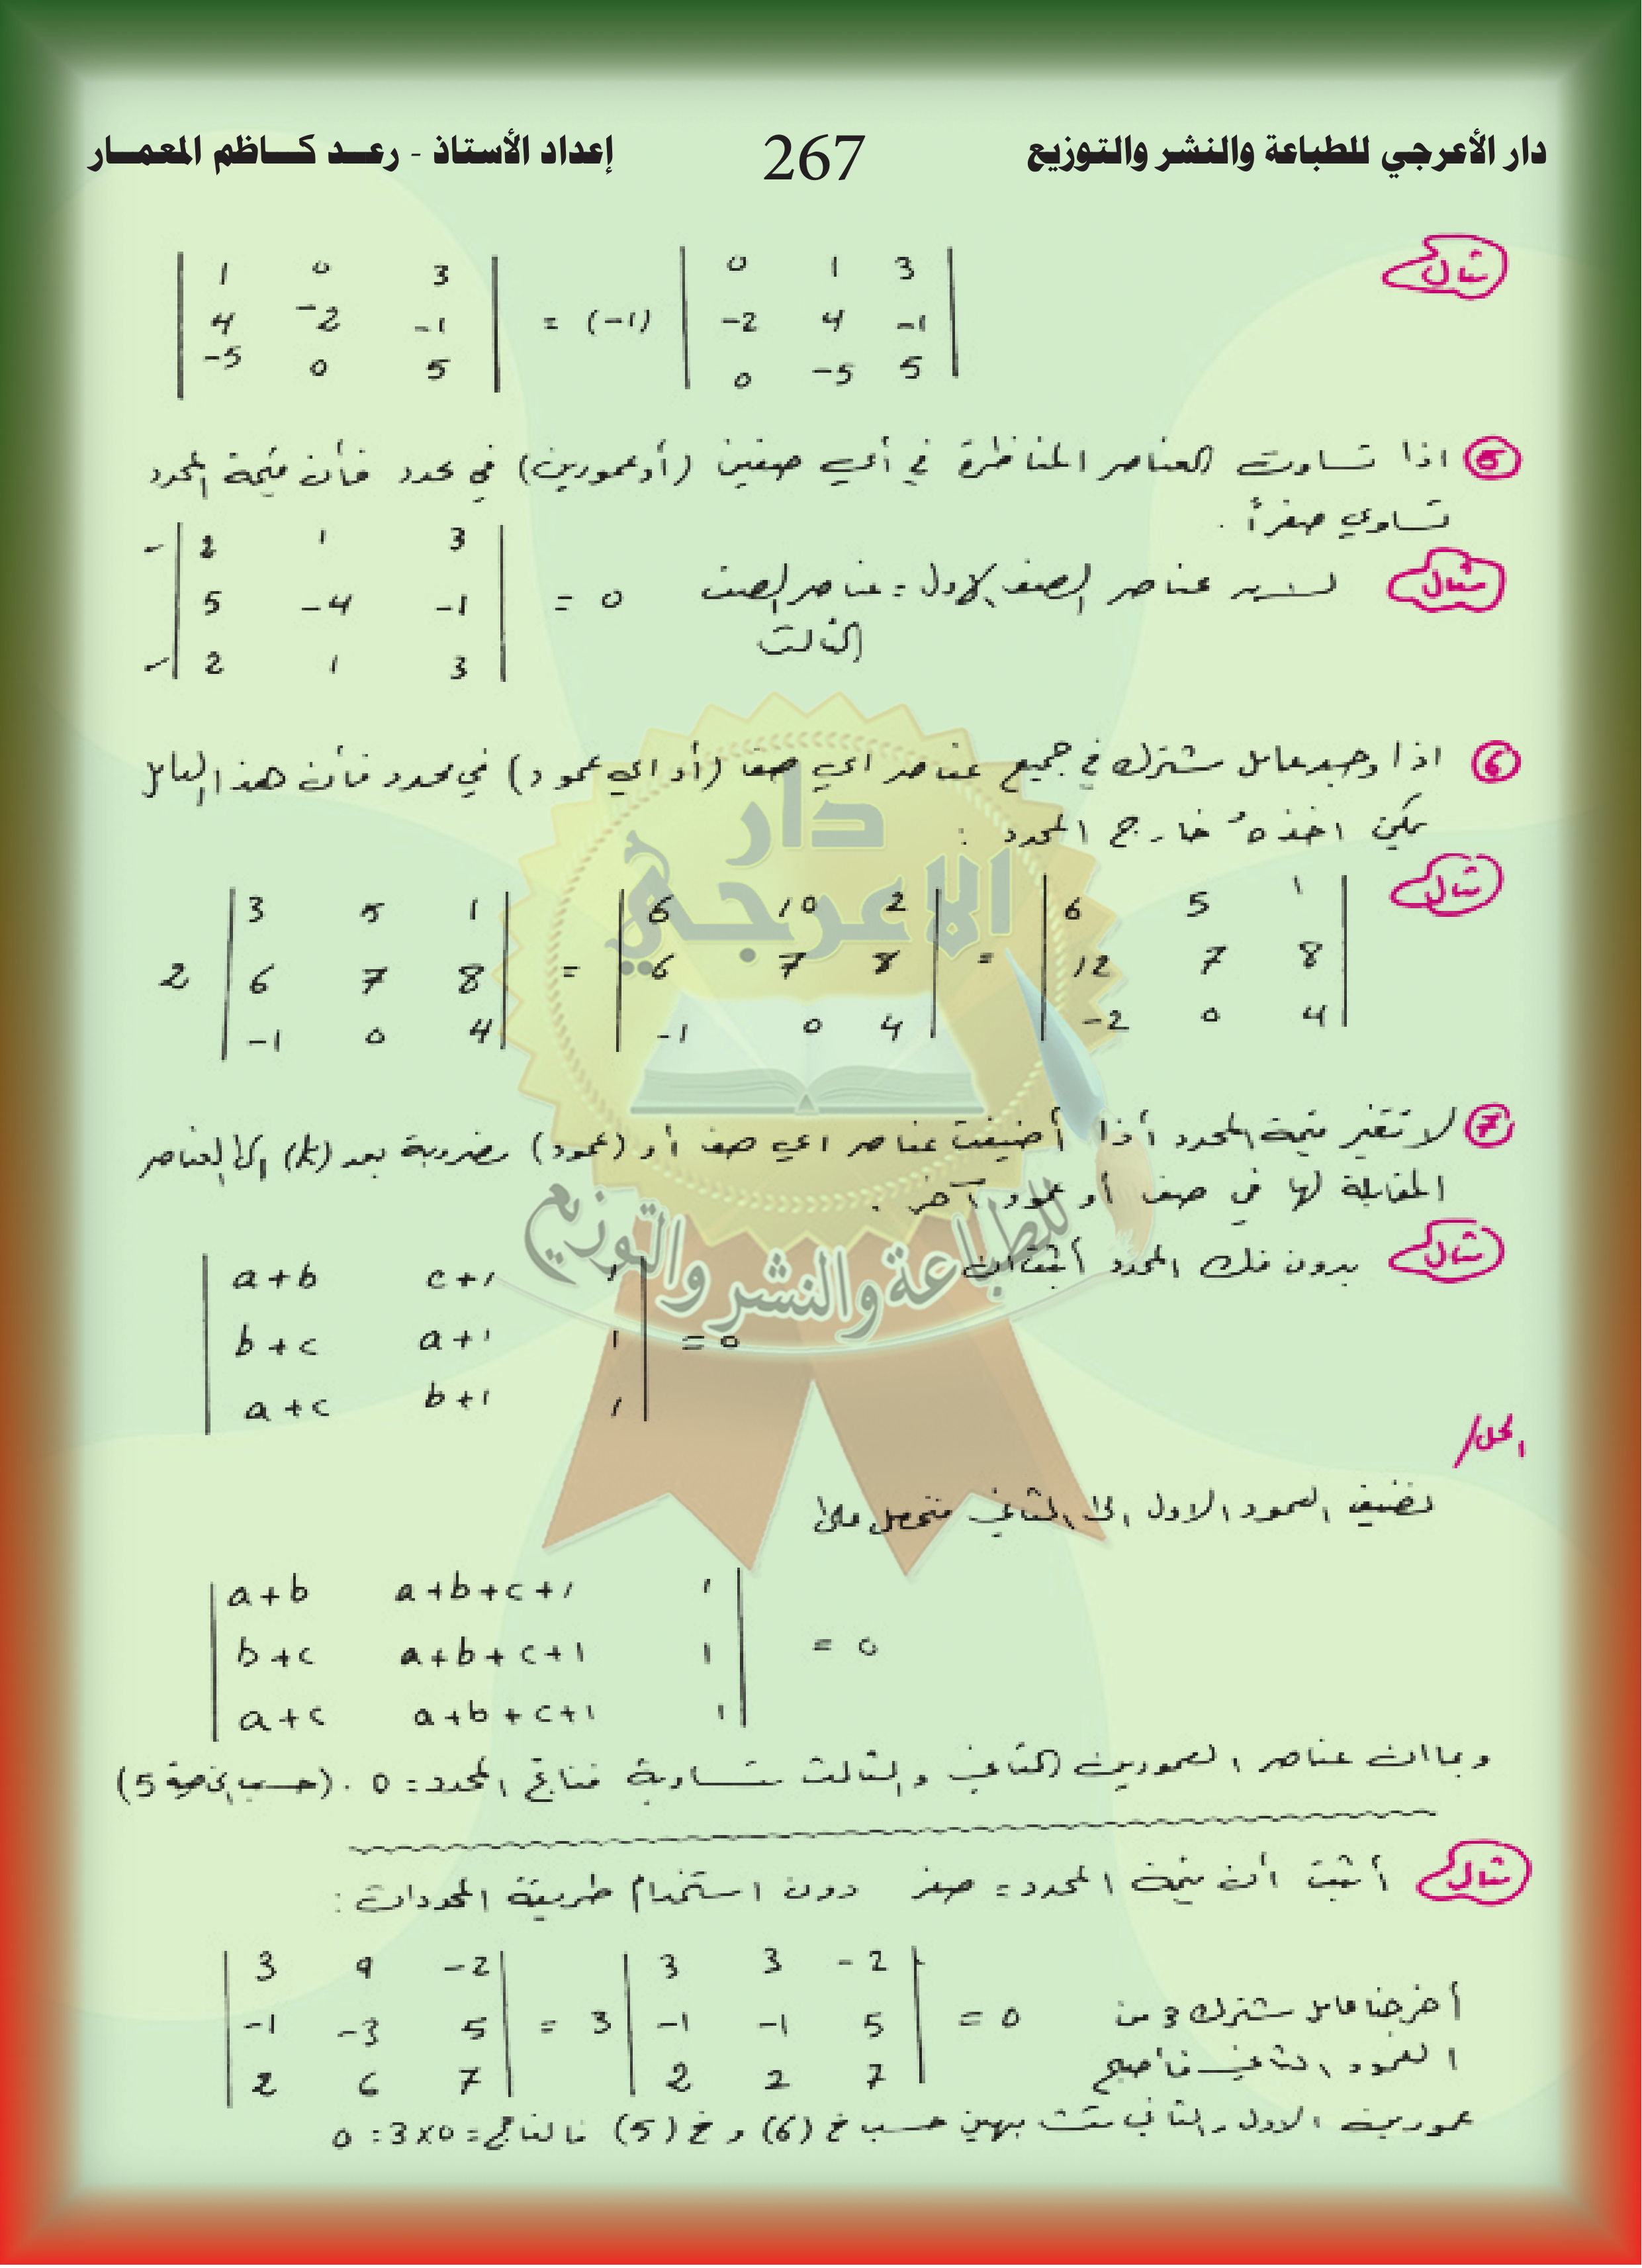 دار الأعرجي للطباعة والنشر والتوزيع 267 إعداد الأستاذ - رعـد كـاظم المعمـار
مثال
| 1 0 3 | = (-1) | 0 1 3 |
| 4 -2 -1 | | -2 4 -1 |
| -5 0 5 | | 0 -5 5 |
5 اذا تساوت العناصر المتناظرة في أي صفين (أو عمودين) في محدد فأن قيمة المحدد
تساوي صفراً .
مثال
| 2 1 3 |
| 5 -4 -1 | = 0 عناصر الصف الاول = عناصر الصف
الثالث
| 2 1 3 |
6 اذا وجد عامل مشترك في جميع عناصر اي صف (أو اي عمود) في محدد فأن هذا العامل
يمكن اخذه خارج المحدد :
مثال
2 | 3 5 1 | = | 6 10 2 | = | 6 5 1 |
| 6 7 8 | | 6 7 8 | | 12 7 8 |
| -1 0 4 | | -1 0 4 | | -2 0 4 |
7 لا تتغير قيمة المحدد أذا أضيفت عناصر اي صف أو (عمود) مضروبة بعدد (k) الى العناصر
المقابلة لها في صف أو عمود آخر .
مثال بدون فك المحدد أثبت ان
| a+b c+1 1 |
| b+c a+1 1 | = 0
| a+c b+1 1 |
الحل/
نضيف العمود الاول الى الثاني فنحصل على
| a+b a+b+c+1 1 |
| b+c a+b+c+1 1 | = 0
| a+c a+b+c+1 1 |
وبما ان عناصر العمودين الثاني والثالث متساوية فناتج المحدد = 0 . (حسب الخاصية 5)
مثال أثبت أن قيمة المحدد = صفر دون استخدام طريقة المحددات :
| 3 9 -2 | = 3 | 3 3 -2 |
| -1 -3 5 | | -1 -1 5 | = 0 أخرجنا عامل مشترك 3 من
| 2 6 7 | | 2 2 7 | العمود الثاني فأصبح
عمودين الاول والثاني متشابهين حسب خ (6) و خ (5) فالناتج = 3×0 = 0
دار
الاعرجي
للطباعة والنشر والتوزيع